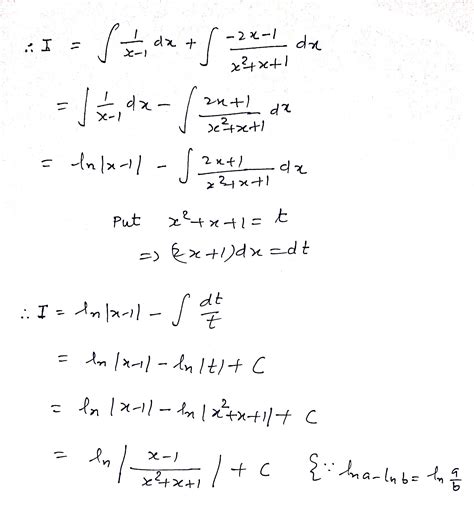 ∴ I = ∫ 1/(x-1) dx + ∫ (-2x-1)/(x²+x+1) dx
= ∫ 1/(x-1) dx - ∫ (2x+1)/(x²+x+1) dx
= ln|x-1| - ∫ (2x+1)/(x²+x+1) dx
Put x²+x+1 = t
=> (2x+1)dx = dt
∴ I = ln|x-1| - ∫ dt/t
= ln|x-1| - ln|t| + C
= ln|x-1| - ln|x²+x+1| + C
= ln|(x-1)/(x²+x+1)| + C {∵ lna-lnb = ln a/b